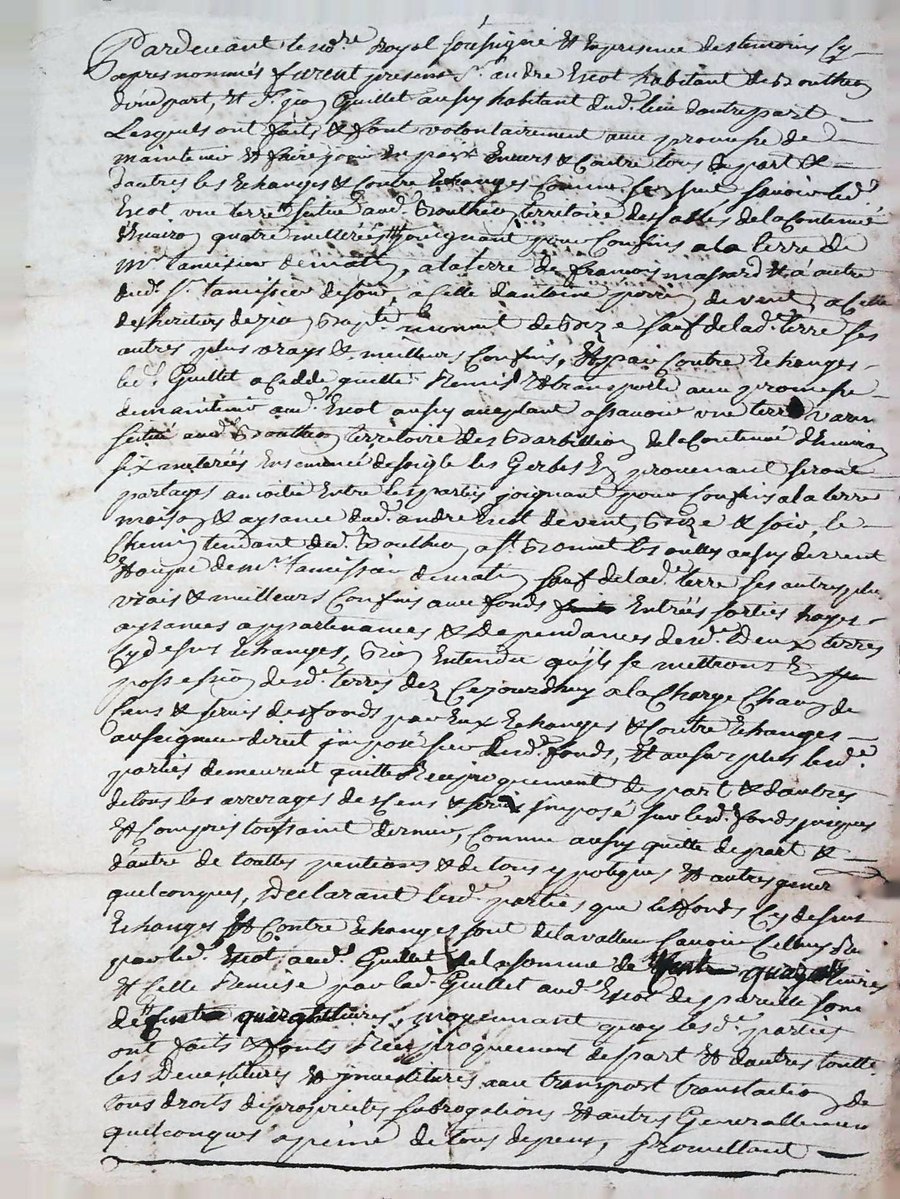 Pardevant le no.re Royal soussigné & En presence des temoins Cy
apres nommés furent presens S.r andre Escot habitant de Boutheon
d'une part, & S.r jean Guillet aussy habitant dud. lieu d'autre part
Lesquels ont faits & font volontairement avec promesse de
maintenir & faire jouir En paix Envers & Contre tous de part &
d'autres les Echanges & Contre Echanges Comme sensuit savoir led.
Escot une terre situé aud. Bouthéon territoire des de la Contenue
Environ quatre metterées joignant pour Confins a la terre de
M.r tamisier de matin, a la terre de francois & a autre
dud. S.r tamisier de soir, a celle d'antoine de vent, a celle
des heritiers de jean Bapt.e de Bize sauf de lad. terre ses
autres plus vrays & meilleurs Confins, & par Contre Echanges
led. Guillet a Cedde quitté Remis & transporté avec promesse
de maintenir aud. Escot aussy acceptant assavoir une terre
situé aud. Bouthéon territoire des de la Contenue d'Environ
six meterées Ensemencé de soigle les Gerbes En provenant seront
partagés a moitié Entre les parties joignant pour Confins a la terre
maison & aysance dud. andre Escot de vent, Bize & soir, le
Chemin tendant dud. Bouthéon a S.t Bonnet les oulles aussy de vent
& de M.r tamissier de matin sauf de lad. terre ses autres plus
vrais & meilleurs Confins avec fonds Entrées sorties hayes
aysances appartenances & Dependances desd. Deux terres
Cy dessus Echanges, bien Entendu qu'ils se mettront En
possession desd. terres dez Cejourdhuy a la Charge Chacun de
Cens & servis des fonds par Eux Echanges & Contre Echanges
au seigneur direct jmposé sur lesd. fonds, & aussy plus lesd.
parties demeurent quitte Reciproquement de part & d'autres
de tous les arrerages de Cens & servis jmposé sur lesd. fonds jusques
& Compris toussaint dernier, Comme aussy quitte de part &
d'autre de touttes pentions & de tous ypoteques & autres
quelconques, Declarant lesd. parties que les fonds Cy dessus
Echanges & Contre Echanges sont de la valleur savoir Celluy
par led. Escot aud. Guillet de la somme de livres
& Celle Remise par led. Guillet aud. Escot de pareille som
de livres, moyennant quoy lesd. parties
ont faits & fonts Reciproquement de part & d'autres toutte
les Devestitures & jnvestitures avec transport translation de
tous droits de proprietes subrogations & autres Generallement
quelconques a peine de tous depens, Promettant